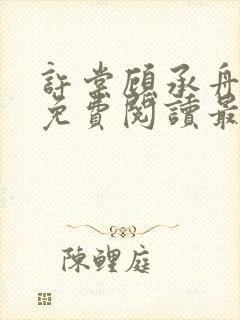 許棠顧承舟
免費閱讀最
陳鯉庭